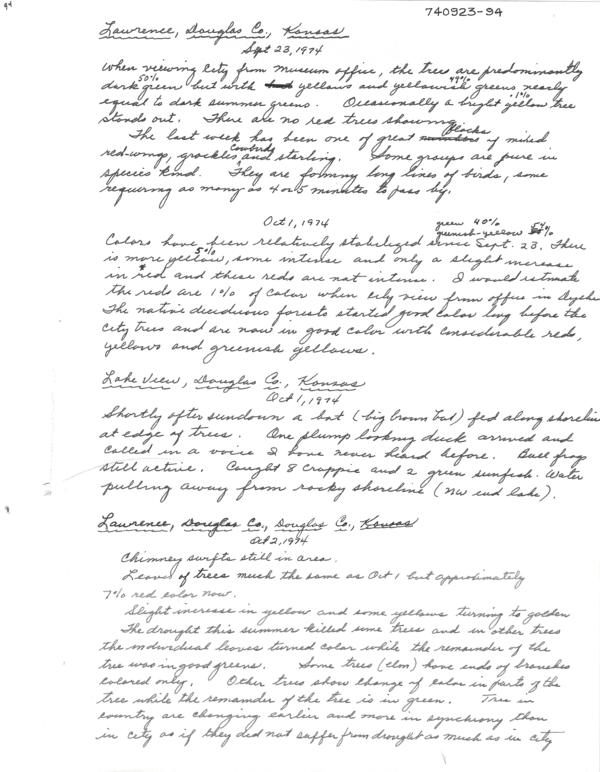 94
740923-94
Lawrence, Douglas Co., Kansas
Sept 23, 1974
When viewing city from museum office, the trees are predominantly
50% 49%
dark green but with yellows and yellowish greens nearly
.1%
equal to dark summer greens. Occasionally a bright yellow tree
stands out. There are no red trees showing.
flocks
The last week has been one of great numbers of mixed
Cowbirds
red-wings, grackles, and starling. Some groups are pure in
species kind. They are forming long lines of birds, some
requiring as many as 4 or 5 minutes to pass by.
Oct 1, 1974
green 40%
greenish-yellow 54%
Colors have been relatively stabilized since Sept. 23. There
5%
is more yellow, some intense and only a slight increase
in red and these reds are not intense. I would estimate
the reds are 1% of color when city view from office in Dyche
The native deciduous forests started good color long before the
city trees and are now in good color with considerable reds,
yellows and greenish yellows.
Lake View, Douglas Co., Kansas
Oct 1, 1974
Shortly after sundown a bat (big brown bat) fed along shoreline
at edge of trees. One plump looking duck arrived and
called in a voice I have never heard before. Bull frogs
still active. Caught 8 crappie and 2 green sunfish. Water
pulling away from rocky shoreline (NW end lake).
Lawrence, Douglas Co., Douglas Co., Kansas
Oct 2, 1974
Chimney swifts still in area.
Leaves of trees much the same as Oct 1 but approximately
7% red color now.
Slight increase in yellow and some yellows turning to golden
The drought this summer killed some trees and in other trees
the individual leaves turned color while the remainder of the
tree was in good greens. Some trees (elm) have ends of branches
colored only. Other trees show change of color in parts of the
tree while the remainder of the tree is in green. Trees in
country are changing earlier and more in synchrony than
in city as if they did not suffer from drought as much as in city